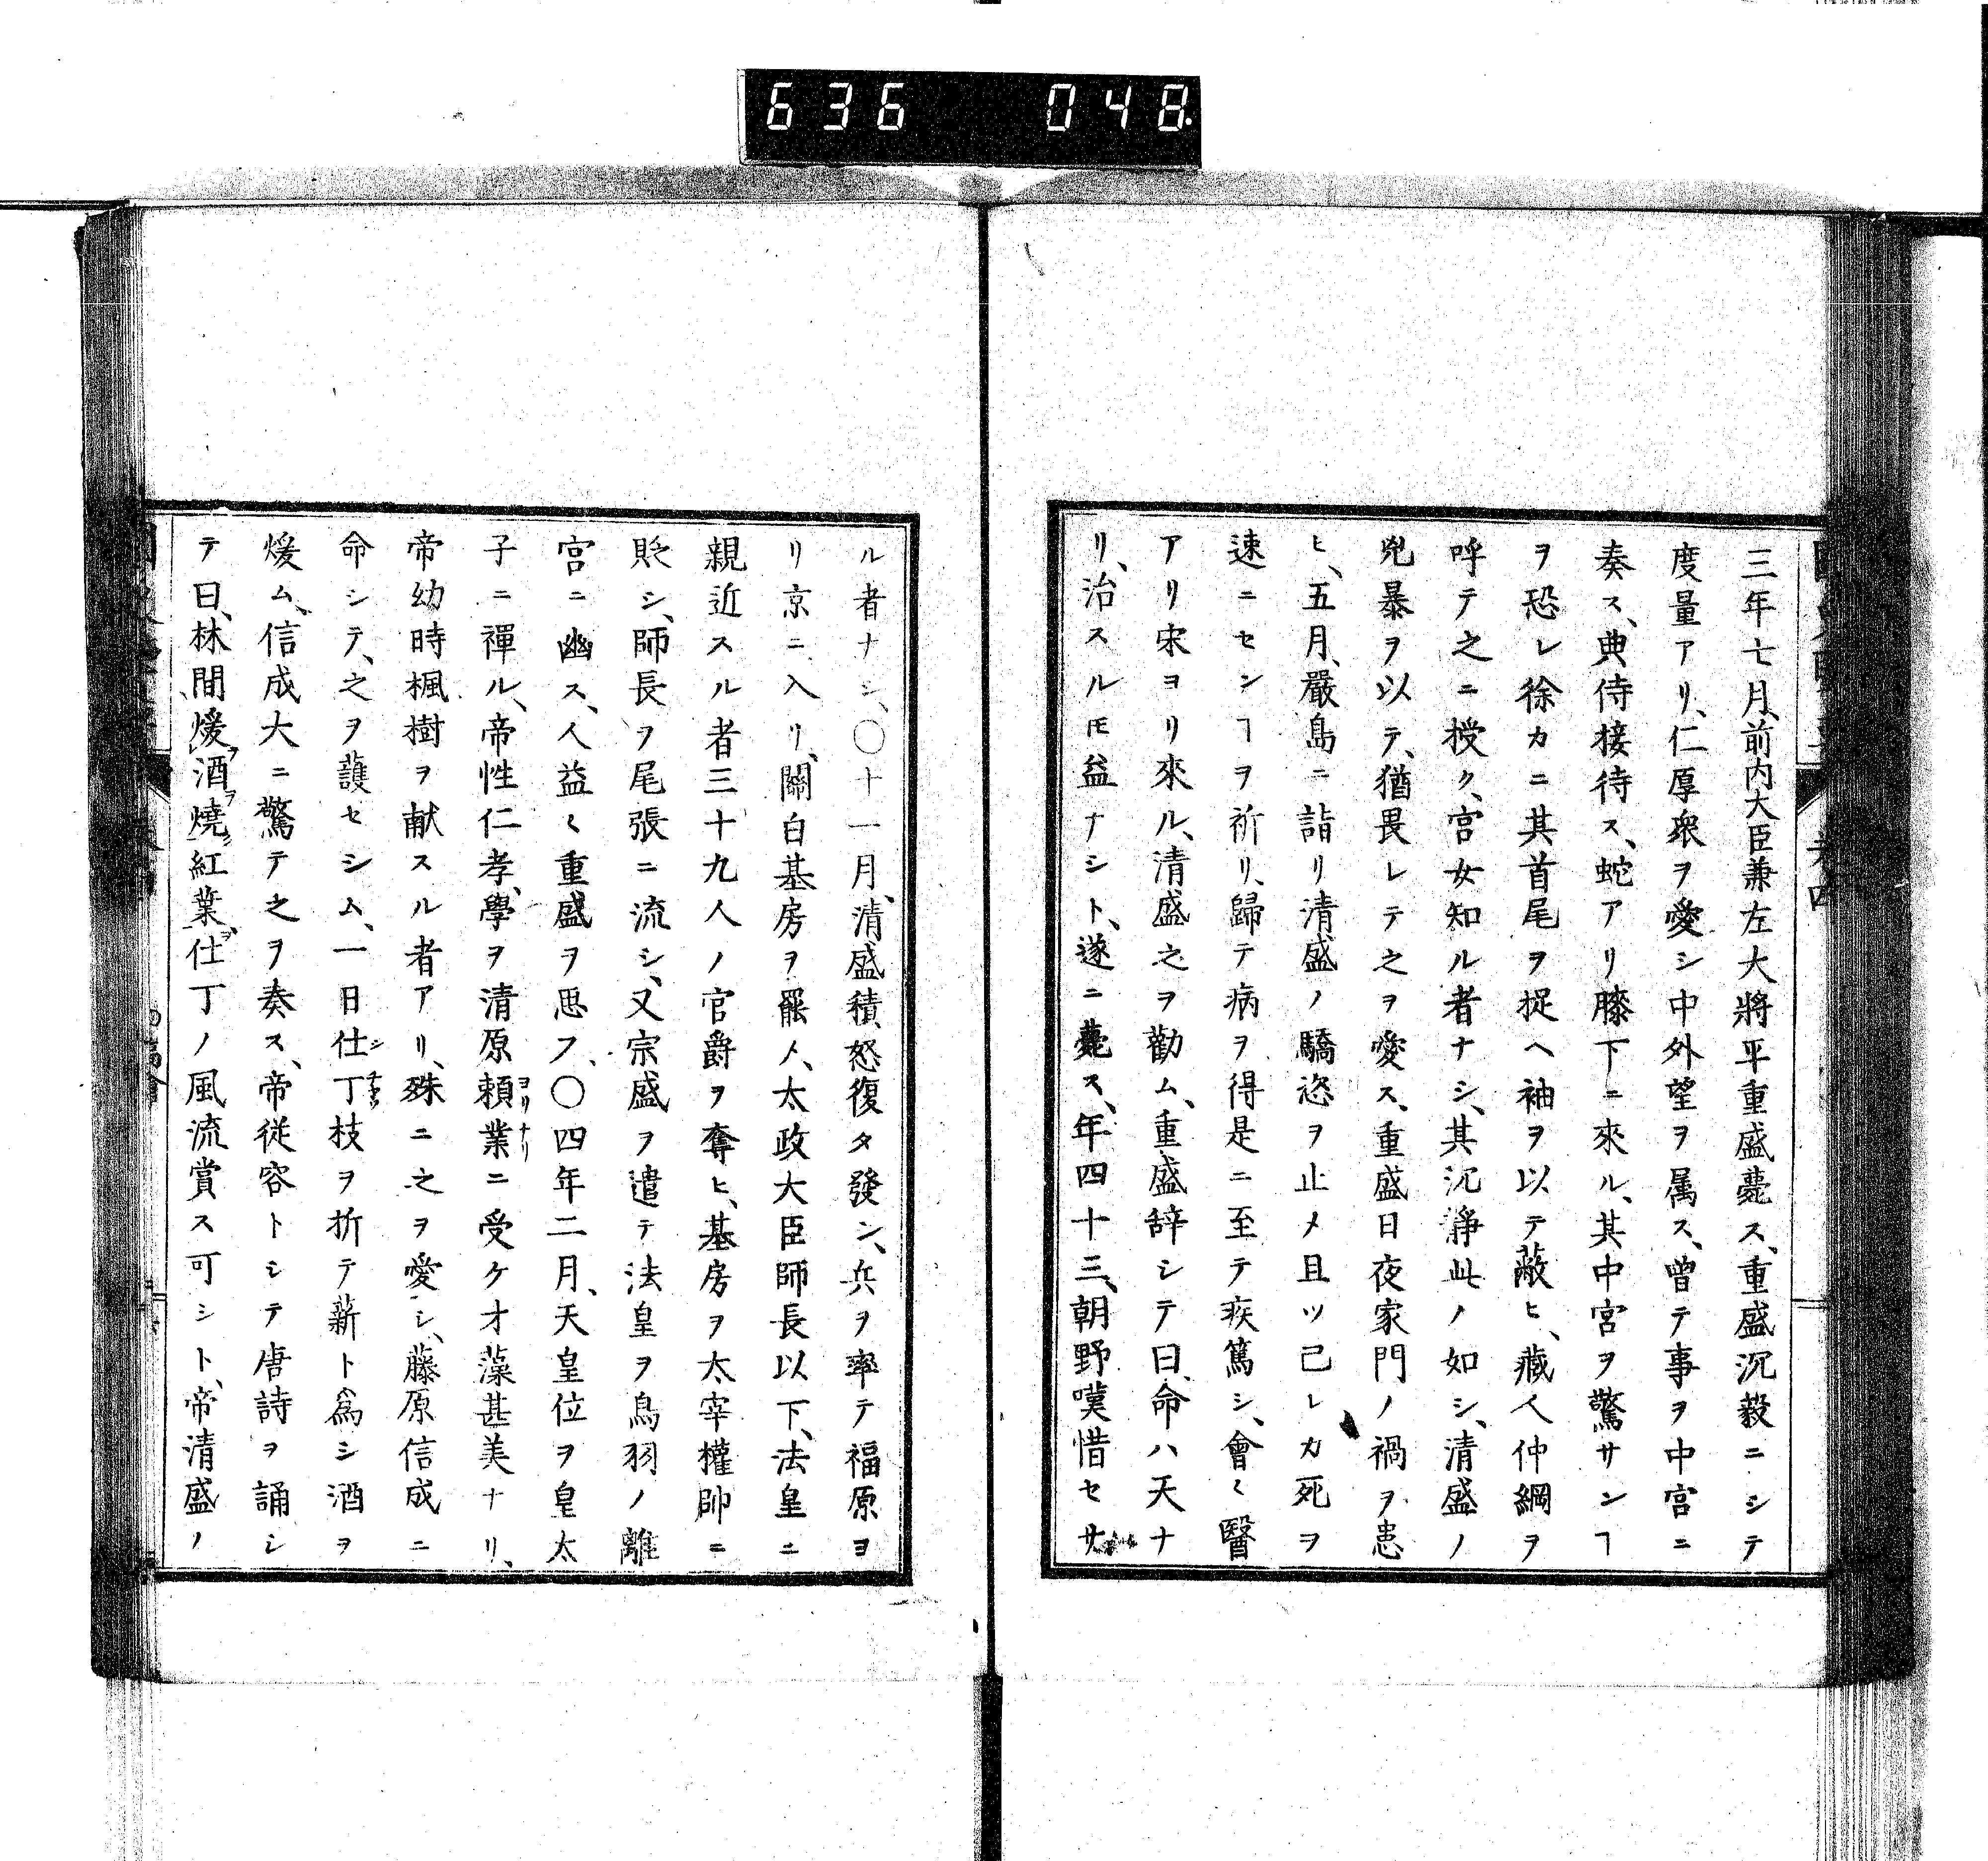 636 048
三年七月、前内大臣兼左大將平重盛薨ス、重盛沉毅ニシテ
度量アリ、仁厚衆ヲ愛シ中外望ヲ属ス、曽テ事ヲ中宮ニ
奏ス、典侍接待ス、蛇アリ膝下ニ來ル、其中宮ヲ驚サンヿ
ヲ恐レ徐カニ其首尾ヲ捉ヘ袖ヲ以テ蔽ヒ、藏人仲綱ヲ
呼テ之ニ授ク、宮女知ル者ナシ、其沉静此ノ如シ、清盛ノ
兇暴ヲ以テ、猶畏レテ之ヲ愛ス、重盛日夜家門ノ禍ヲ患
ヒ、五月、嚴島ニ詣リ清盛ノ驕恣ヲ止メ且ツ己レカ死ヲ
速ニセンヿヲ祈リ、歸テ病ヲ得是ニ至テ疾篤シ、會〻醫
アリ宋ヨリ來ル、清盛之ヲ勸ム、重盛辞シテ曰、命ハ天ナ
リ、治スルモ益ナシト、遂ニ薨ス、年四十三、朝野嘆惜セサ
ル者ナシ、〇十一月、清盛積怒復タ發シ、兵ヲ率テ福原ヨ
リ京ニ入リ、關白基房ヲ罷メ、太政大臣師長以下、法皇ニ
親近スル者三十九人ノ官爵ヲ奪ヒ、基房ヲ太宰權帥ニ
貶シ、師長ヲ尾張ニ流シ、又宗盛ヲ遣テ法皇ヲ鳥羽ノ離
宮ニ幽ス、人益〻重盛ヲ思フ、〇四年二月、天皇位ヲ皇太
子ニ禪ル、帝性仁孝、學ヲ清原頼業ニ受ケオ藻甚美ナリ、
帝幼時楓樹ヲ献スル者アリ、殊ニ之ヲ愛シ、藤原信成ニ
命シテ、之ヲ護セシム、一日仕丁枝ヲ折テ薪ト爲シ酒ヲ
煖ム、信成大ニ驚テ之ヲ奏ス、帝従容トシテ唐詩ヲ誦シ
テ曰、林間煖酒燒紅葉、仕丁ノ風流賞ス可シト、帝清盛ノ